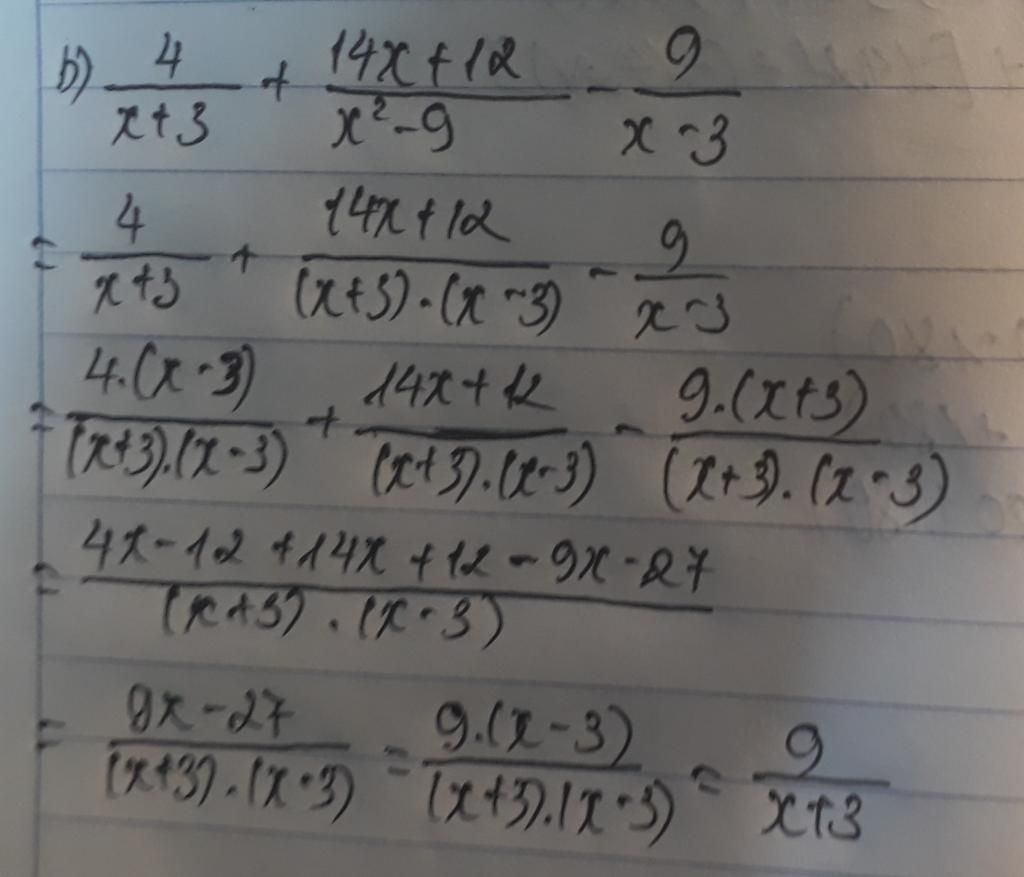 b) 4/(x+3) + (14x+12)/(x²-9) - 9/(x-3)
= 4/(x+3) + (14x+12)/((x+3).(x-3)) - 9/(x-3)
= 4.(x-3)/((x+3).(x-3)) + (14x+12)/((x+3).(x-3)) - 9.(x+3)/((x+3).(x-3))
= (4x-12+14x+12-9x-27)/((x+3).(x-3))
= (9x-27)/((x+3).(x-3)) = 9.(x-3)/((x+3).(x-3)) = 9/(x+3)